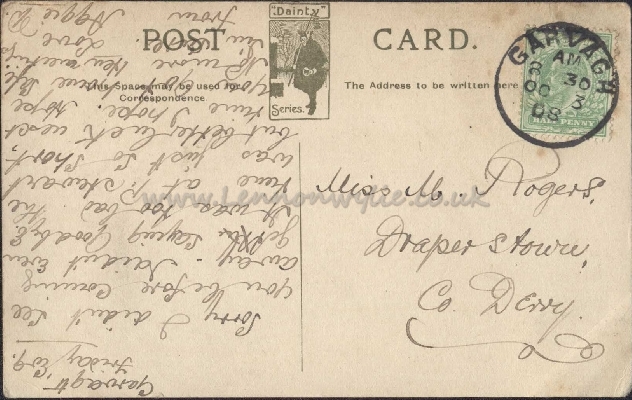 POST CARD.
"Dainty"
Series.
This Space may be used for
Correspondence
The Address to be written here
GARVAGH
AM
8 30
OC 3
08
HALF PENNY
Miss M. Rogers,
Draperstown,
Co. Derry.
www.Lennonwylie.co.uk
Garvagh
Friday
Sorry I didn't see
you before coming
away - I didn't even
get saying Goodbye
It was too bad the
time at Stewart
was just so short,
but better luck next
time I hope
you got home
No more
Love
from
Aggie R